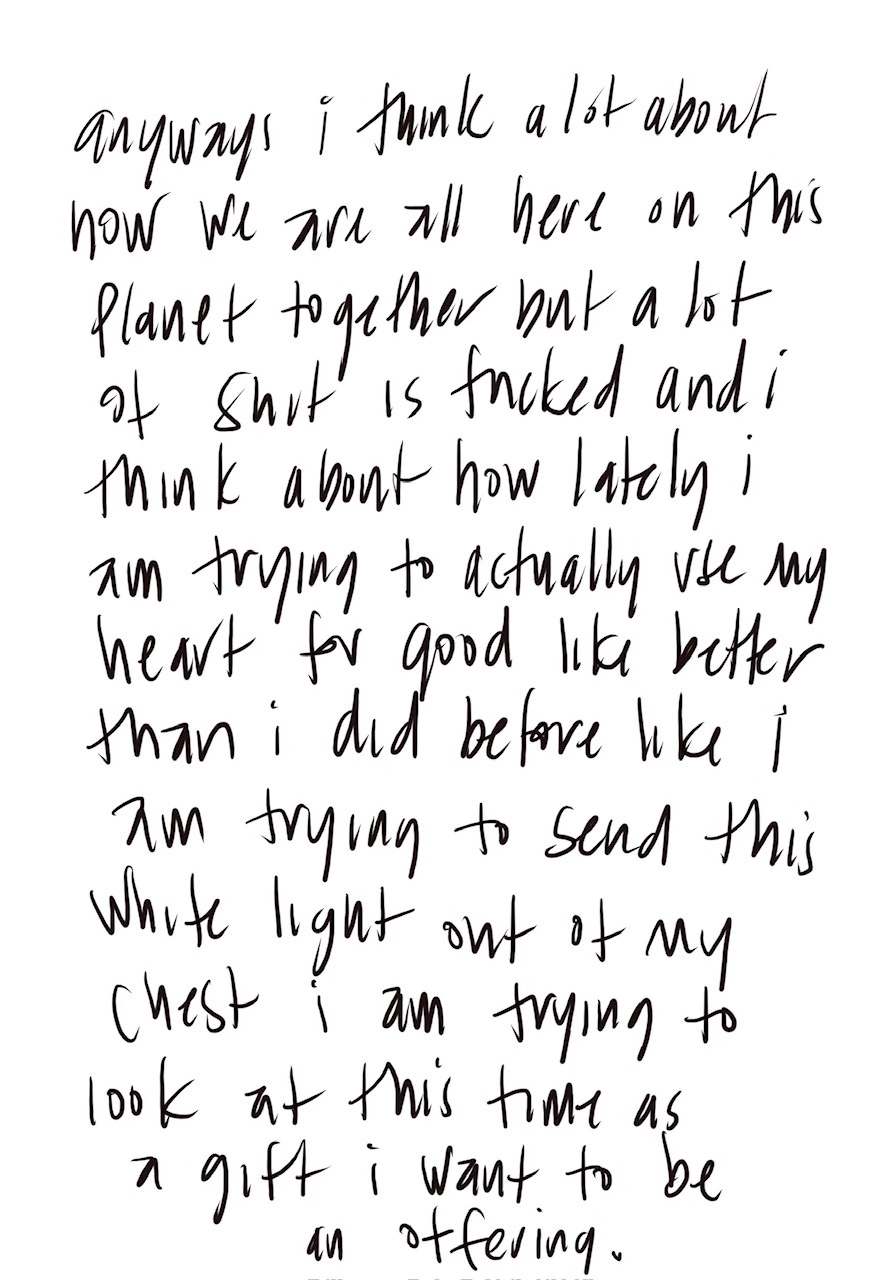 anyways i think a lot about
how we are all here on this
planet together but a lot
of shit is fucked and i
think about how lately i
am trying to actually use my
heart for good like better
than i did before like i
am trying to send this
white light out of my
chest i am trying to
look at this time as
a gift i want to be
an offering.